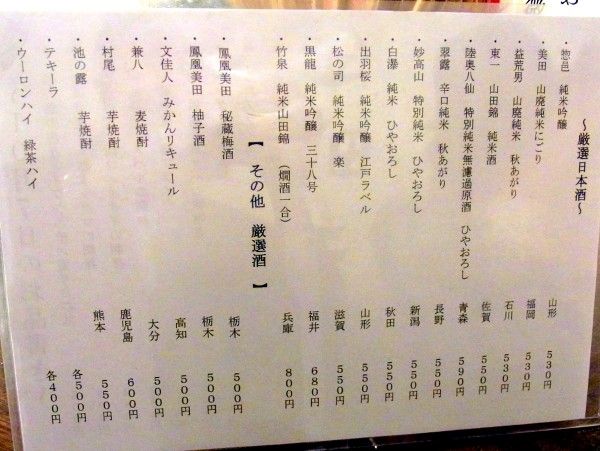 ～厳選日本酒～
・惣邑 純米吟醸 山形 530円
・美田 山廃純米にごり 福岡 530円
・益荒男 山廃純米 秋あがり 石川 530円
・東一 山田錦 純米酒 佐賀 550円
・陸奥八仙 特別純米無濾過原酒 ひやおろし 青森 590円
・翠露 辛口純米 秋あがり 長野 550円
・妙高山 特別純米 ひやおろし 新潟 550円
・白瀑 純米 ひやおろし 秋田 550円
・出羽桜 純米吟醸 江戸ラベル 山形 550円
・松の司 純米吟醸 楽 滋賀 550円
・黒龍 純米吟醸 三十八号 福井 680円
・竹泉 純米山田錦 (燗酒一合) 兵庫 800円
【 その他 厳選酒 】
・鳳凰美田 秘蔵梅酒 栃木 500円
・鳳凰美田 柚子酒 栃木 500円
・文佳人 みかんリキュール 高知 500円
・兼八 麦焼酎 大分 500円
・村尾 芋焼酎 鹿児島 600円
・池の露 芋焼酎 熊本 550円
・テキーラ 各500円
・ウーロンハイ 緑茶ハイ 各400円